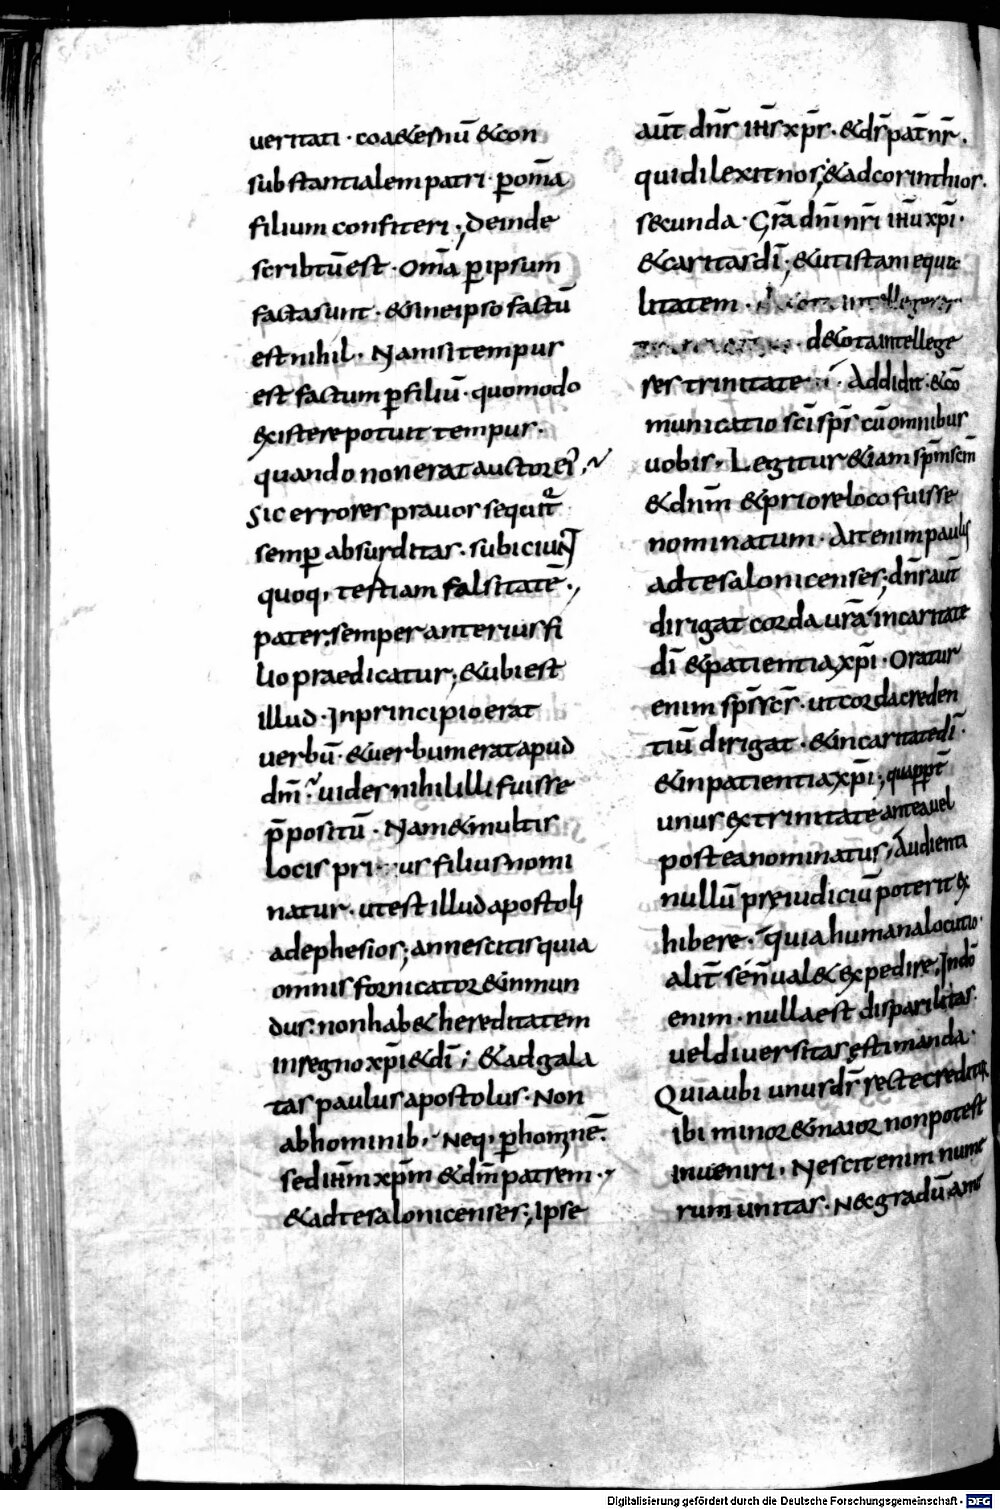 ueritati · coaet&ernū & con
substantialem patri · p̱ om̄a
filium confiteri ; Deinde
scribtū est · Om̄a p̱ ipsum
facta sunt · & sine ipso factū
est nihil · Nam si tempus
est factum p̱ filiū · quomodo
existere potuit tempus ·
quando non erat auctor ei ;
Sic errores prauos sequit̄
semp̱ absurditas · subiciuNT
quoq; testiam falsitatē ·,
pater semper anterius fi
lio praedicatur ; & ubi est
illud · In principio erat
uerbū · & uerbum erat apud
dm̄ · uides nihil illi fuisse
p̄positū · Nam & multis
locis pri us filius nomi
natur · ut est illud apostoli
ad ephesios ; an nescitis quia
omnis fornicator & inmun
dus · non hab& hereditatem
in regno xp̄i & dī ; & ad gala
tas paulus apostolus · Non
ab hominib; Neq; p̱ hominē ·
sed ih̄m xp̄m & dm̄ patrem ·
& ad tesalonicenses ; Ipse
aūt dn̄s ih̄s xp̄s · & ds̄ pat̄ nr̄ ·
qui dilexit nos ; & ad corinthios ·
secunda · Gr̄a dn̄i nr̄i ih̄u xp̄i ·
& caritas dī ; & ut istam equa
litatem ·
de tota intellege
res trinitate · Addidit · & cō
municatio sc̄i sp̄s cū omnibus
uobis · Legitur &iam sp̄m sc̄m
& dn̄m & priore loco fuisse
nominatum · Ait enim paulus
ad tesalonicenses ; dn̄s aūt
dirigat corda ur̄a in caritate
dī & patientia xp̄i · Oratur
enim sp̄s sc̄s · ut corda creden
tiū dirigat · & in caritate dī ·
& in patientia xp̄i ; quapp̱t̄
unus ex trinitate antea uel
postea nominatus ; Audienti
nullū preiudiciū poterit ex
hibere · quia humana locutio ·
alit̄ sen̄ ual& expedire ; In dō
enim · nulla est disparilitas ·
uel diuersitas estimanda ·
Quia ubi unus ds̄ recte creditur
ibi minor & maior non potest
inueniri · Nescit enim nume
rum unitas · N& gradū am